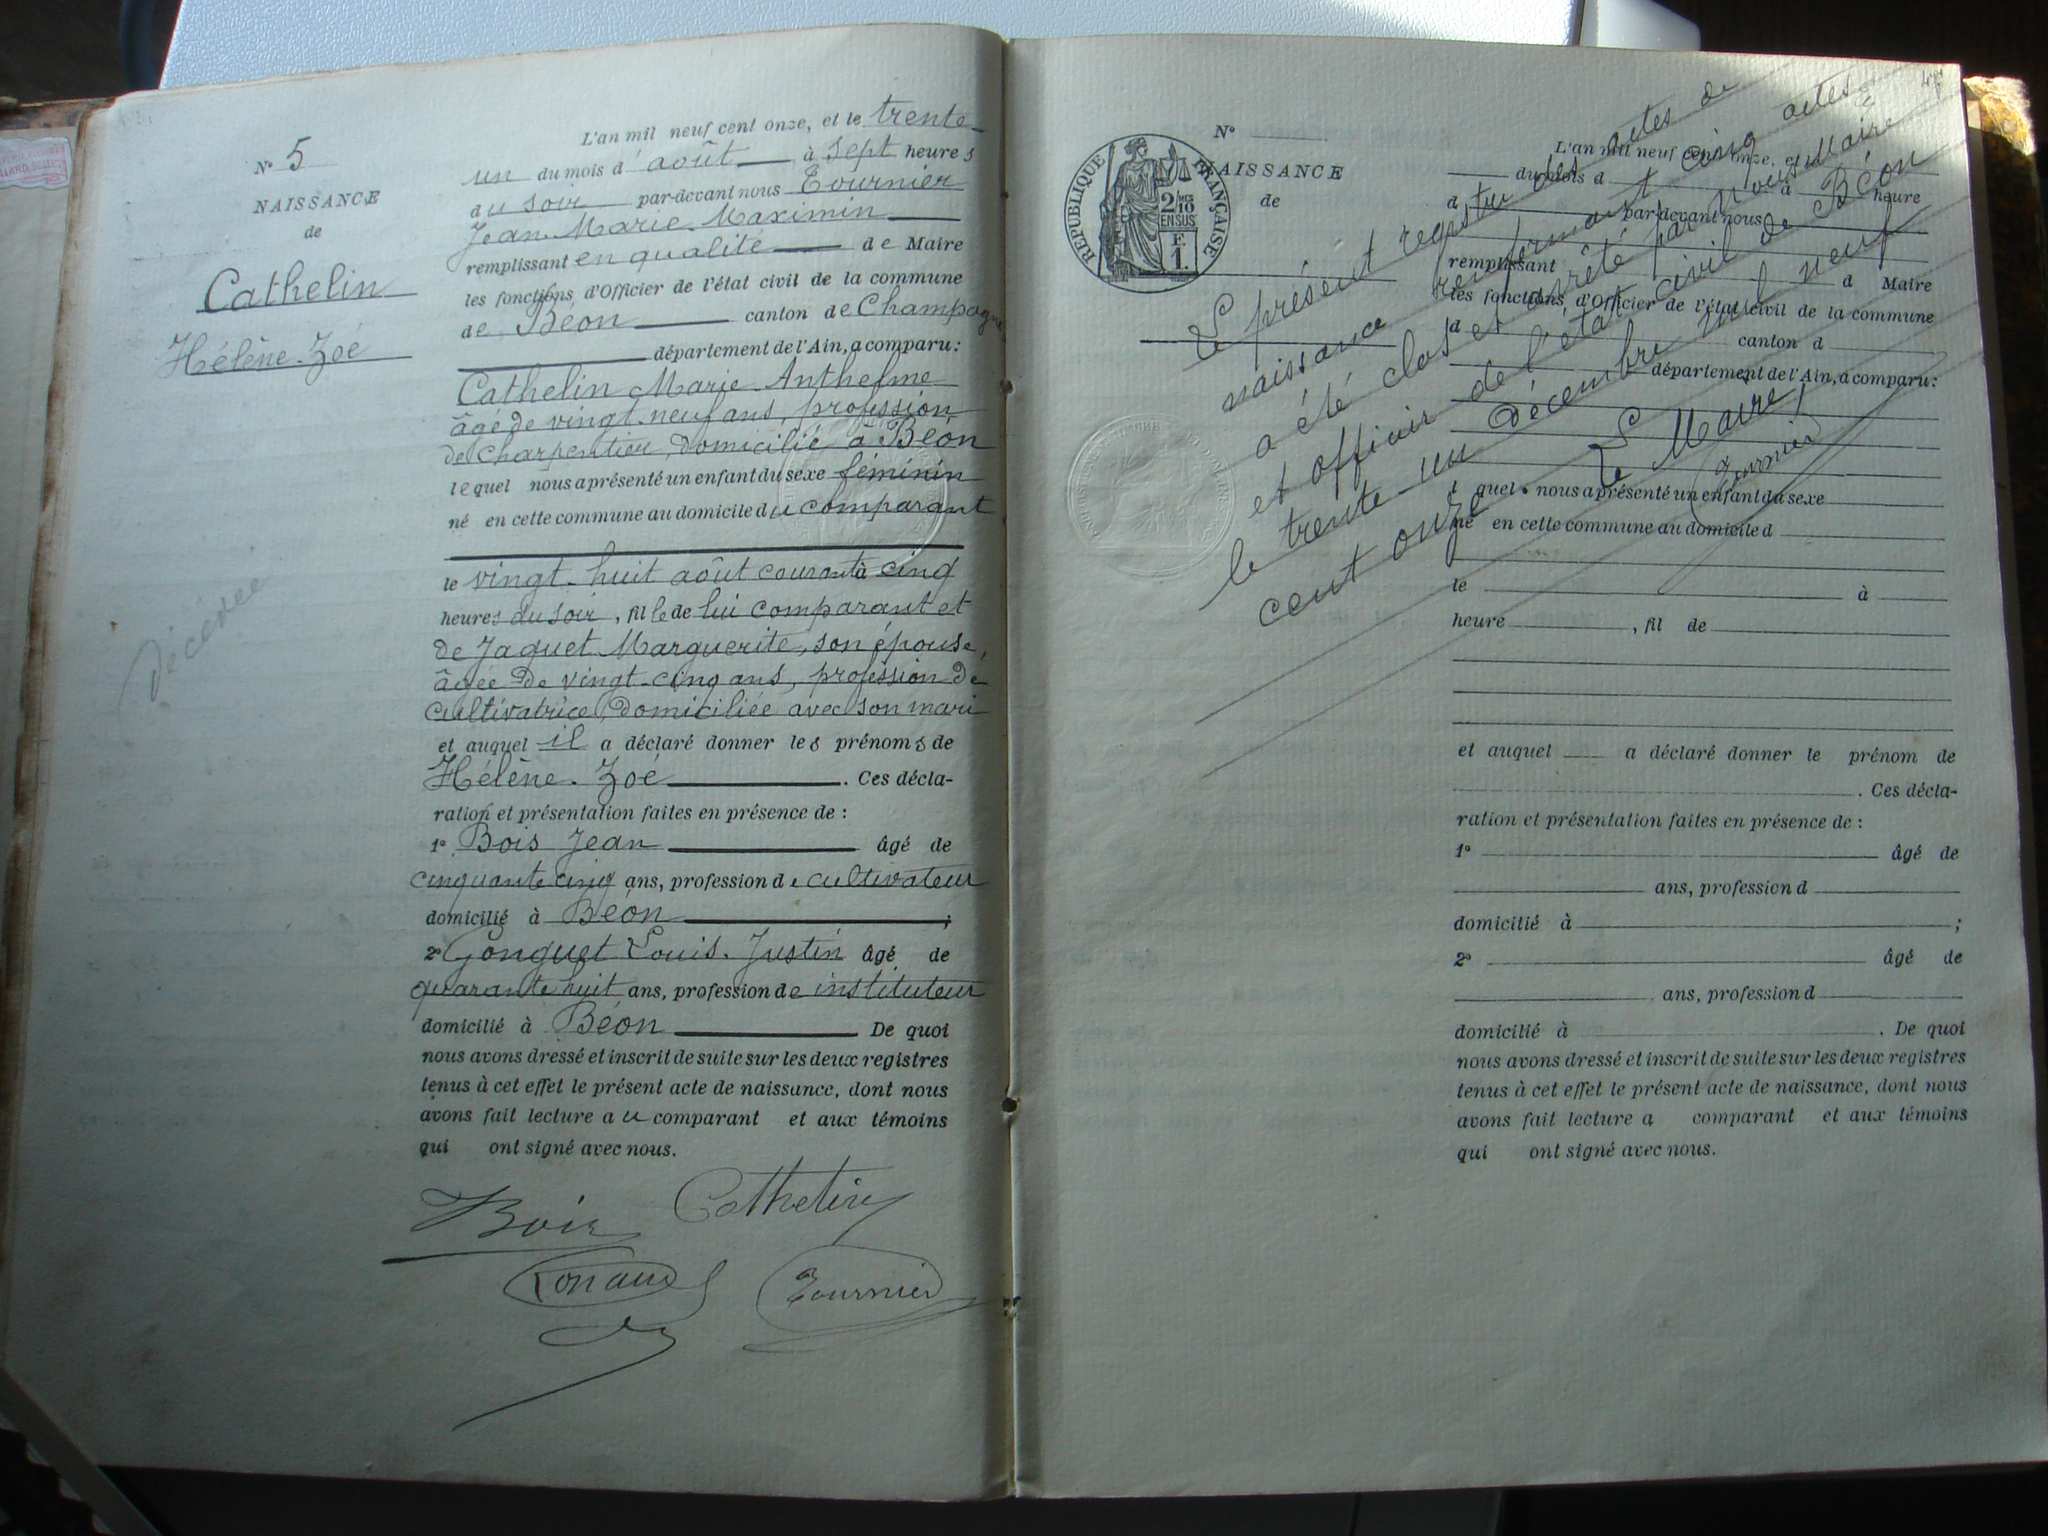 N° 5
NAISSANCE
de
Cathelin
Hélène-Zoé
décédée
L'an mil neuf cent onze, et le trente-
un du mois d'août à sept heures
du soir par-devant nous Tournier
Jean-Marie-Maximin
remplissant en qualité de Maire
les fonctions d'Officier de l'état civil de la commune
de Béon canton de Champagne
département de l'Ain, a comparu:
Cathelin Marie-Anthelme
âgé de vingt-neuf ans, profession
de charpentier, domicilié à Béon
lequel nous a présenté un enfant du sexe féminin
né en cette commune au domicile du comparant
le vingt-huit août courant à cinq
heures du soir, fille de lui comparant et
de Jaquet Marguerite, son épouse,
âgée de vingt-cinq ans, profession de
cultivatrice, domiciliée avec son mari
et auquel il a déclaré donner les prénoms de
Hélène-Zoé. Ces décla-
ration et présentation faites en présence de :
1° Bois Jean âgé de
cinquante cinq ans, profession de cultivateur
domicilié à Béon;
2° Gonguet Louis-Justin âgé de
quarante huit ans, profession de instituteur
domicilié à Béon De quoi
nous avons dressé et inscrit de suite sur les deux registres
tenus à cet effet le présent acte de naissance, dont nous
avons fait lecture au comparant et aux témoins
qui ont signé avec nous.
Bois Cathelin
Tournier
N°
NAISSANCE
de
RÉPUBLIQUE FRANÇAISE
2/10
EN SUS
F.
1.
L'an mil neuf cent onze, et le
du mois d à heure
d par-devant nous
remplissant d Maire
les fonctions d'Officier de l'état civil de la commune
d canton d
département de l'Ain, a comparu:
l quel nous a présenté un enfant du sexe
né en cette commune au domicile d
le à
heure , fil de
et auquel a déclaré donner le prénom de
. Ces décla-
ration et présentation faites en présence de :
1° âgé de
ans, profession d
domicilié à ;
2° âgé de
ans, profession d
domicilié à . De quoi
nous avons dressé et inscrit de suite sur les deux registres
tenus à cet effet le présent acte de naissance, dont nous
avons fait lecture a comparant et aux témoins
qui ont signé avec nous.
Le présent registre des actes de
naissance renfermant cinq actes
a été clos et arrêté par nous Maire
et officier de l'état civil de Béon
le trente-un décembre mil neuf
cent onze
Le Maire,
Tournier